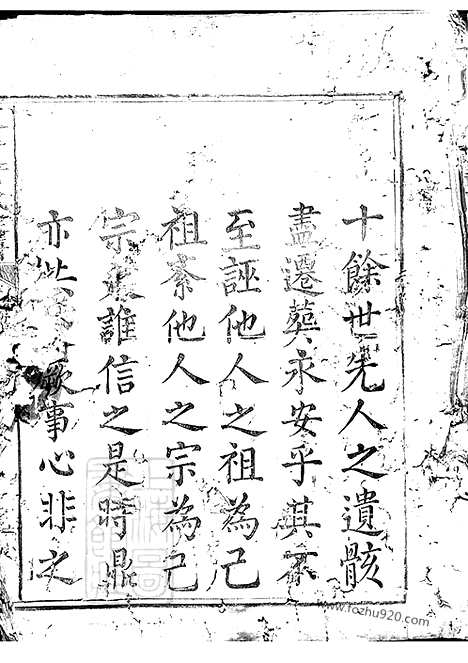 十餘世先人之遺骸
盡遷葬永安乎其不
至誣他人之祖為己
祖紊他人之宗為己
宗誰信之是時鼎
亦歐事心非之
www.fozhu920.com